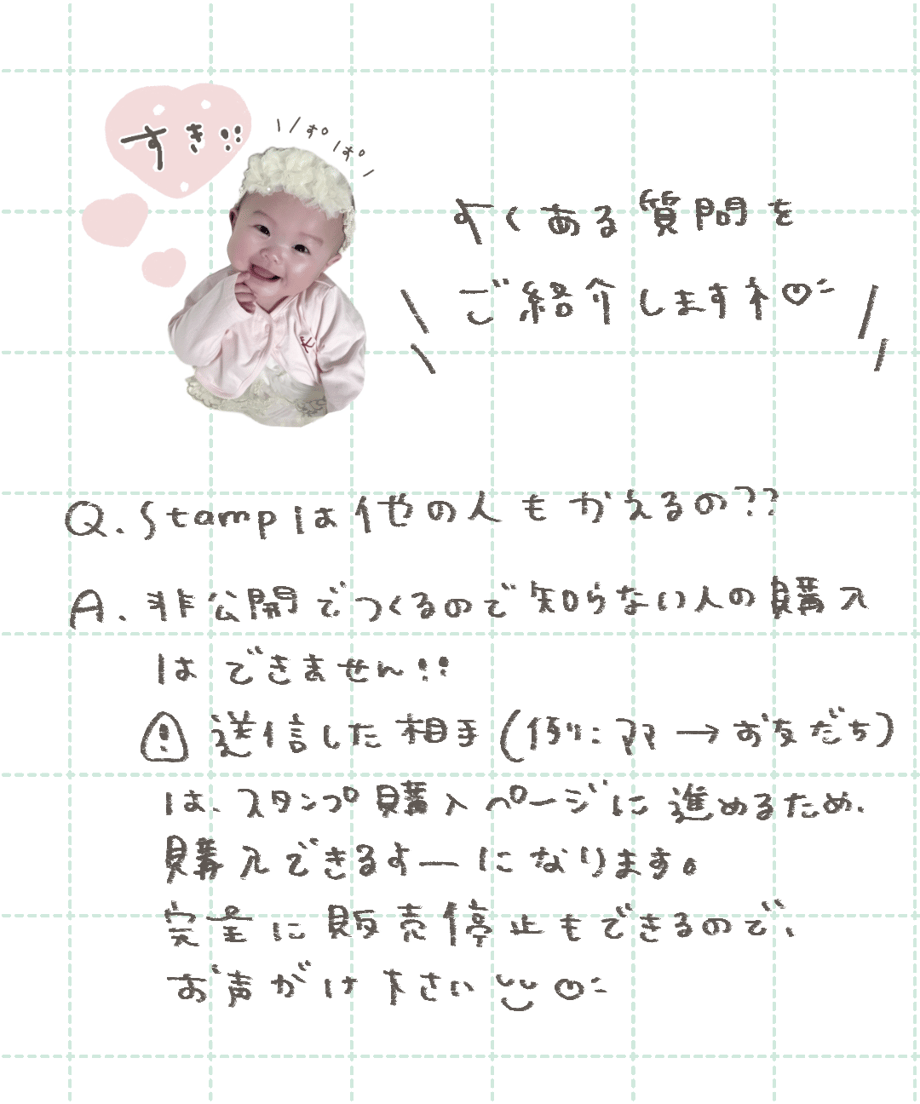 すき!!
ぽ
ぽ
よくある質問を
ご紹介しますネ
Q. Stampは他の人もかえるの??
A. 非公開でつくるので知らない人の購入
はできません!!
! 送信した相手(例:ママ→お友だち)
は、スタンプ購入ページに進めるため、
購入できるよーになります。
完全に販売停止もできるので、
お声がけ下さい